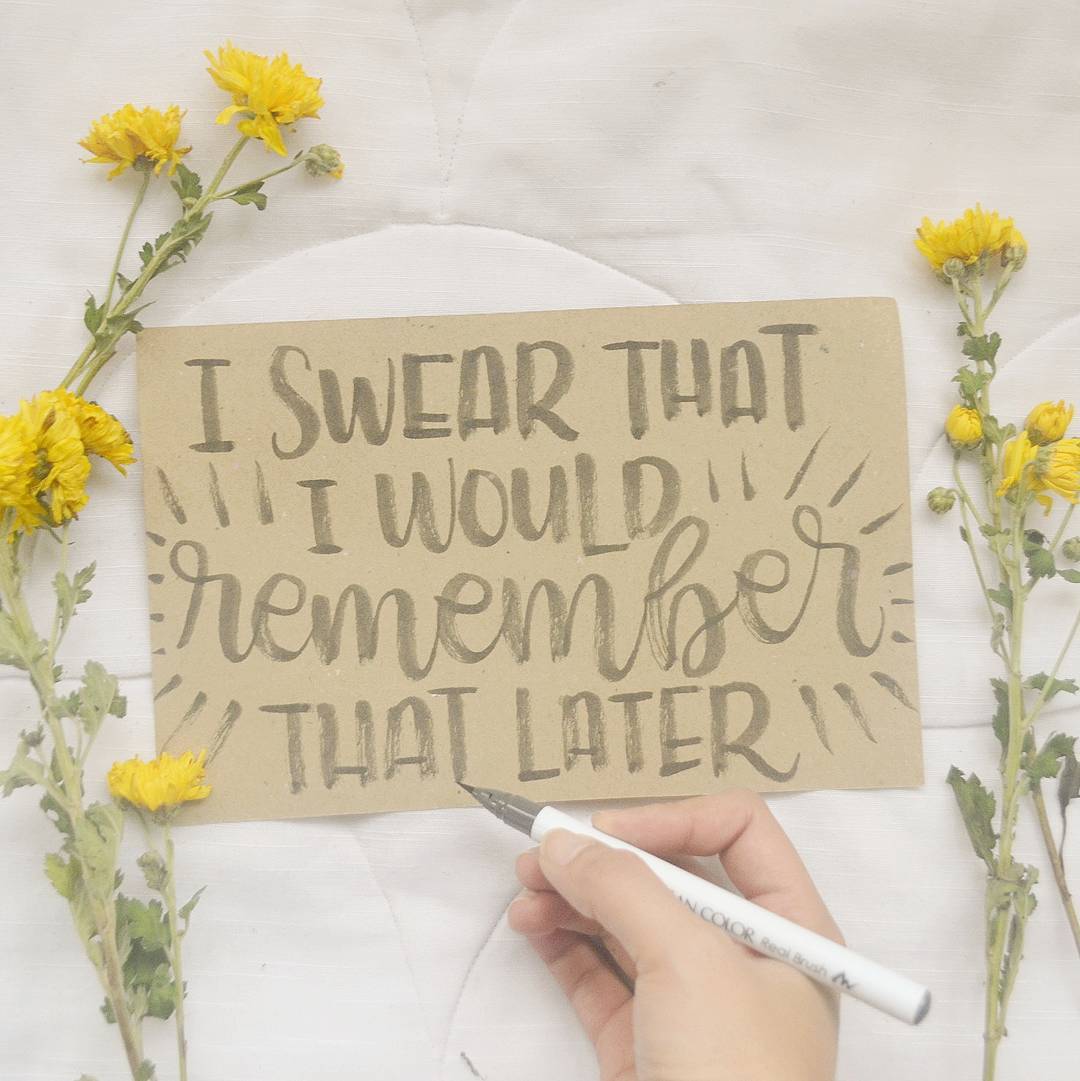 I SWEAR THAT
I WOULD
remember
THAT LATER
COLOR Real Brush